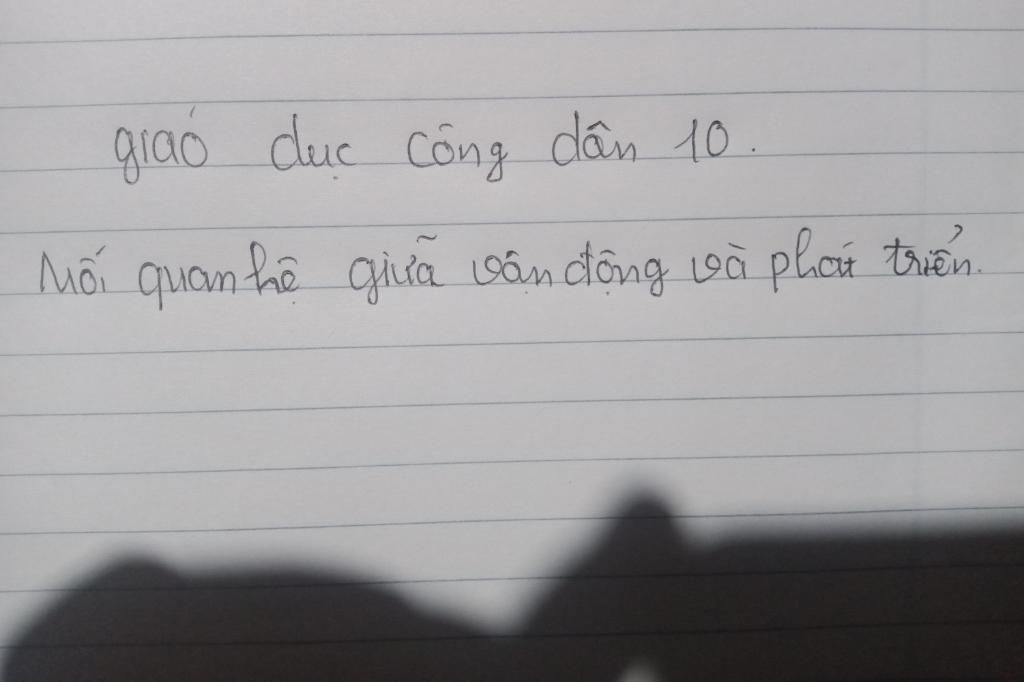 giáo dục công dân 10.
Mối quan hệ giữa vận động và phát triển.